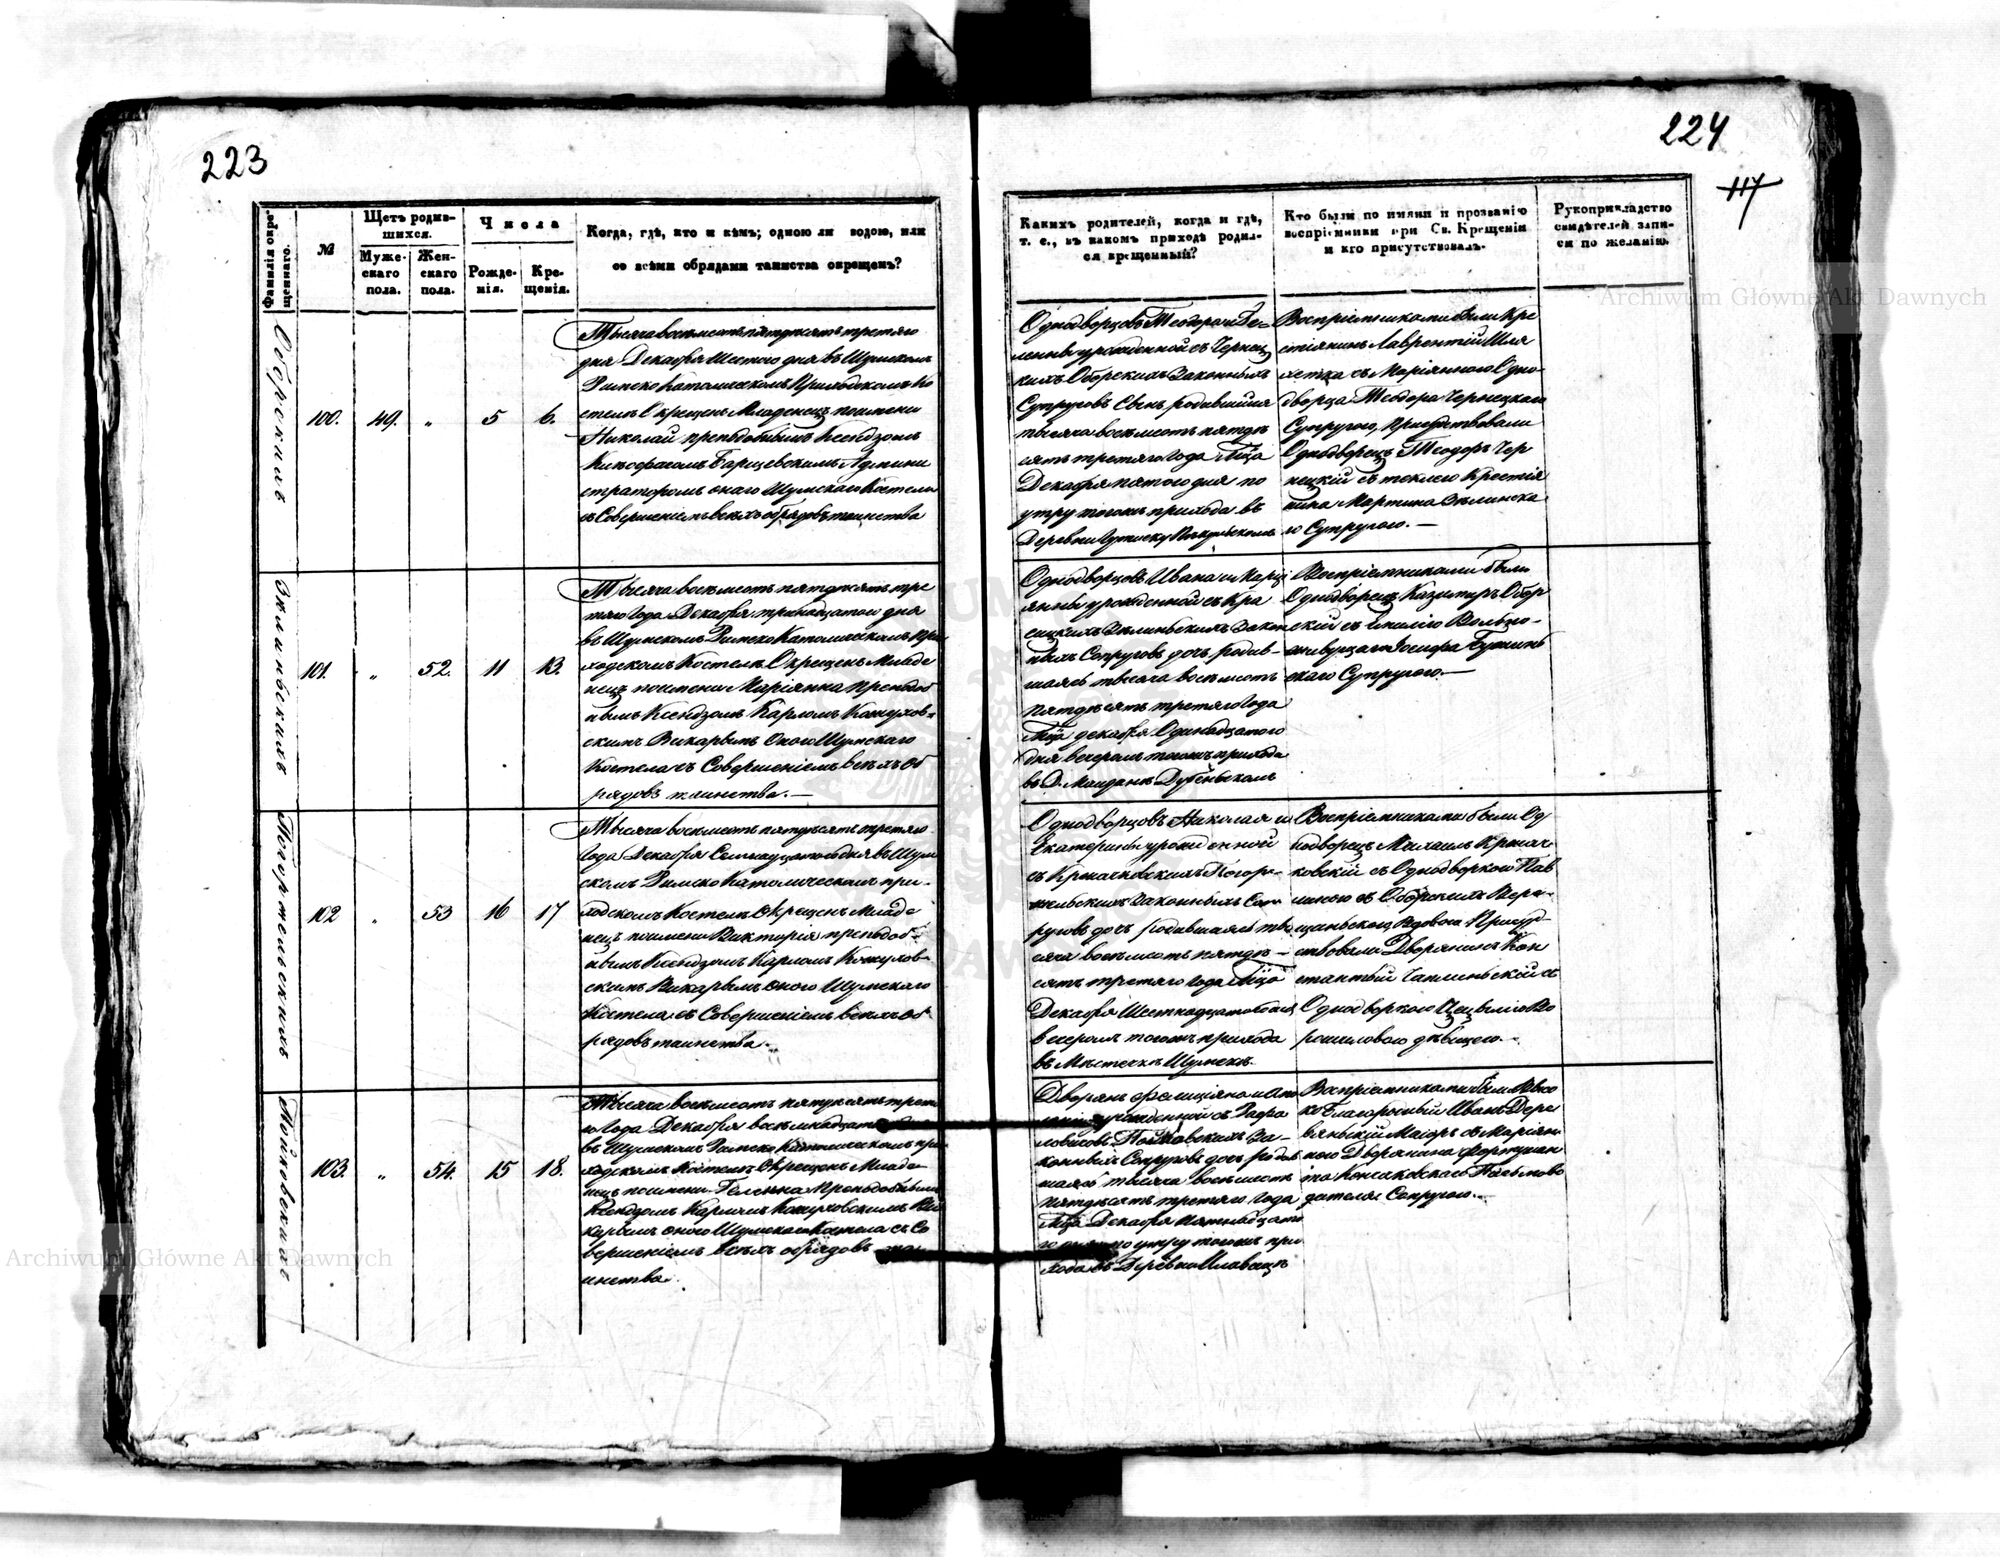 223
Фамилія окре-
щеннаго.
№
Щетъ родив-
шихся.
Муже-
скаго
пола.
Жен-
скаго
пола.
Числа
Рожде-
нія.
Кре-
щенія.
Когда, гдѣ, кто и кѣмъ; одною ли водою, или
со всѣми обрядами таинства окрещенъ?
Оборскихъ
100.
49.
„
5
6.
Тысяча восемсотъ пятдесятъ третяго
дня Декабря Шестого дня въ Шумскомъ
Римско Католическомъ Приходскомъ Ко
стелѣ Окрещенъ Младенецъ поимени
Николай преподобнымъ Ксендзомъ
Барщевскимъ Админи
страторомъ онаго Шумскаго Костела
съ Совершеніемъ всѣхъ обрядовъ таинства
Зѣлинскихъ
101.
„
52.
11
13.
Тысяча восемсотъ пятдесятъ тре
тяго Года Декабря тринадцатого дня
въ Шумскомъ Римско Католическомъ При
ходскомъ Костелѣ Окрещенъ Младе
нецъ поимени Маріянна Преподоб
нымъ Ксендзомъ Карломъ Кожухов-
скимъ Викарымъ Оного Шумскаго
Костела съ Совершеніемъ всѣхъ об
рядовъ таинства.—
Погорѣльскихъ
102
„
53
16
17
Тысяча восемсотъ пятдесятъ третяго
Года Декабря Семнадцатого дня въ Шум
скомъ Римско Католическомъ при-
ходскомъ Костелѣ Окрещенъ Младе
нецъ поимени Викторія преподоб-
нымъ Ксендзомъ Карломъ Кожухов-
скимъ Викарымъ оного Шумскаго
Костела съ Совершеніемъ всѣхъ об-
рядовъ таинства.
Пайковскихъ
103.
„
54.
15
18.
Тысяча восемсотъ пятдесятъ трет
го Года Декабря восемнадцат
въ Шумскомъ Римско Католическомъ при
ходскомъ Костелѣ Окрещенъ Младе
нецъ поимени Гелена Преподобнымъ
Ксендзомъ Карломъ Кожуховскимъ Ви
карымъ оного Шумского Костела съ Со
вершеніемъ всѣхъ обрядовъ та
инства.
224
117
Какихъ родителей, когда и гдѣ,
т. е., въ какомъ приходѣ родил-
ся крещенный?
Кто были по имяни и прозванію
воспріемники при Св. Крещеніи
и кто присутствовалъ.
Рукоприкладство
свидѣтелей запи-
си по желанію.
Однодворцовъ Теодора и Ге-
лены урожденной съ Чернец
кихъ Оборскихъ Законныхъ
Супруговъ Сынъ родившійся
тысяча восемсотъ пятде
сятъ третяго Года Мца
Декабря пятого дня по
утру тогожъ прихода въ
Деревни
Воспріемниками были Кре
стіянинъ Лаврентій Шля
хетка съ Маріянною Одно-
дворца Теодора Чернецкаго
Супругою, Присутствовали
Однодворецъ Теодоръ Чер
нецкій съ теклею Крестія
нина Мартина Зѣлинска
го Супругою.—
Однодворцовъ Ивана и Марі
янны урожденной съ Кра
сицкихъ Зѣлинскихъ Закон
ныхъ Супруговъ дочь родив-
шаясь тысяча восемсотъ
пятдесятъ третяго Года
Мца декабря Одинадцатого
дня вечеромъ тогожъ прихода
въ Д. Майданѣ
Воспріемниками были
Однодворецъ Казимиръ Обор
скій съ Емилію Вольно-
живущаго Іосифа
скаго Супругою.—
Однодворцовъ Николая и
Екатерины урожденной
съ Крначковскихъ Погорѣ-
льскихъ Законныхъ Соп
руговъ дочь родившаясь ты
сяча восемсотъ пятде-
сятъ третяго Года Мца
Декабря Шестнадцатого дня
вечеромъ тогожъ прихода
въ Мѣстечкѣ Шумскѣ.
Воспріемниками были Од
нодворецъ Михаилъ Крнач-
ковскій съ Однодворкою Пав
линою съ Оборскихъ
Вдовою Присут-
ствовали Дворянинъ Кон
стантый Чаплинскій съ
Однодворкою Цецылію
дѣвицею.
Дворянъ Фелиціяна и Анто
ніи урожденной съ
Пайковскихъ За-
конныхъ Сопруговъ дочь родив
шаясь тысяча восемсотъ
пятдесятъ третяго Года
Мца Декабря пятнадцато
го дня по утру тогожъ при
хода въ Деревни Иловицѣ
Воспріемниками были Высо
ко Благородный Иванъ Дере
вянскій Маіоръ съ Маріян
ною Дворянина Фортунан
та
Сопругою.
Archiwum Główne Akt Dawnych
Archiwum Główne Akt Dawnych